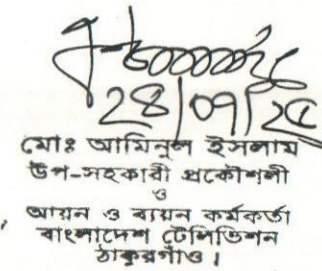 28/09/২৫
মোঃ আমিনুল ইসলাম
উপ-সহকারী প্রকৌশলী
ও
আয়ন ও ব্যয়ন কর্মকর্তা
বাংলাদেশ টেলিভিশন
ঠাকুরগাঁও।